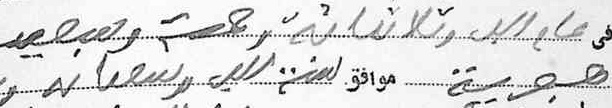 في عام الف وثلاثمائة وخمسة وسبعين
هجرية موافق سنة الف وتسعمائة و